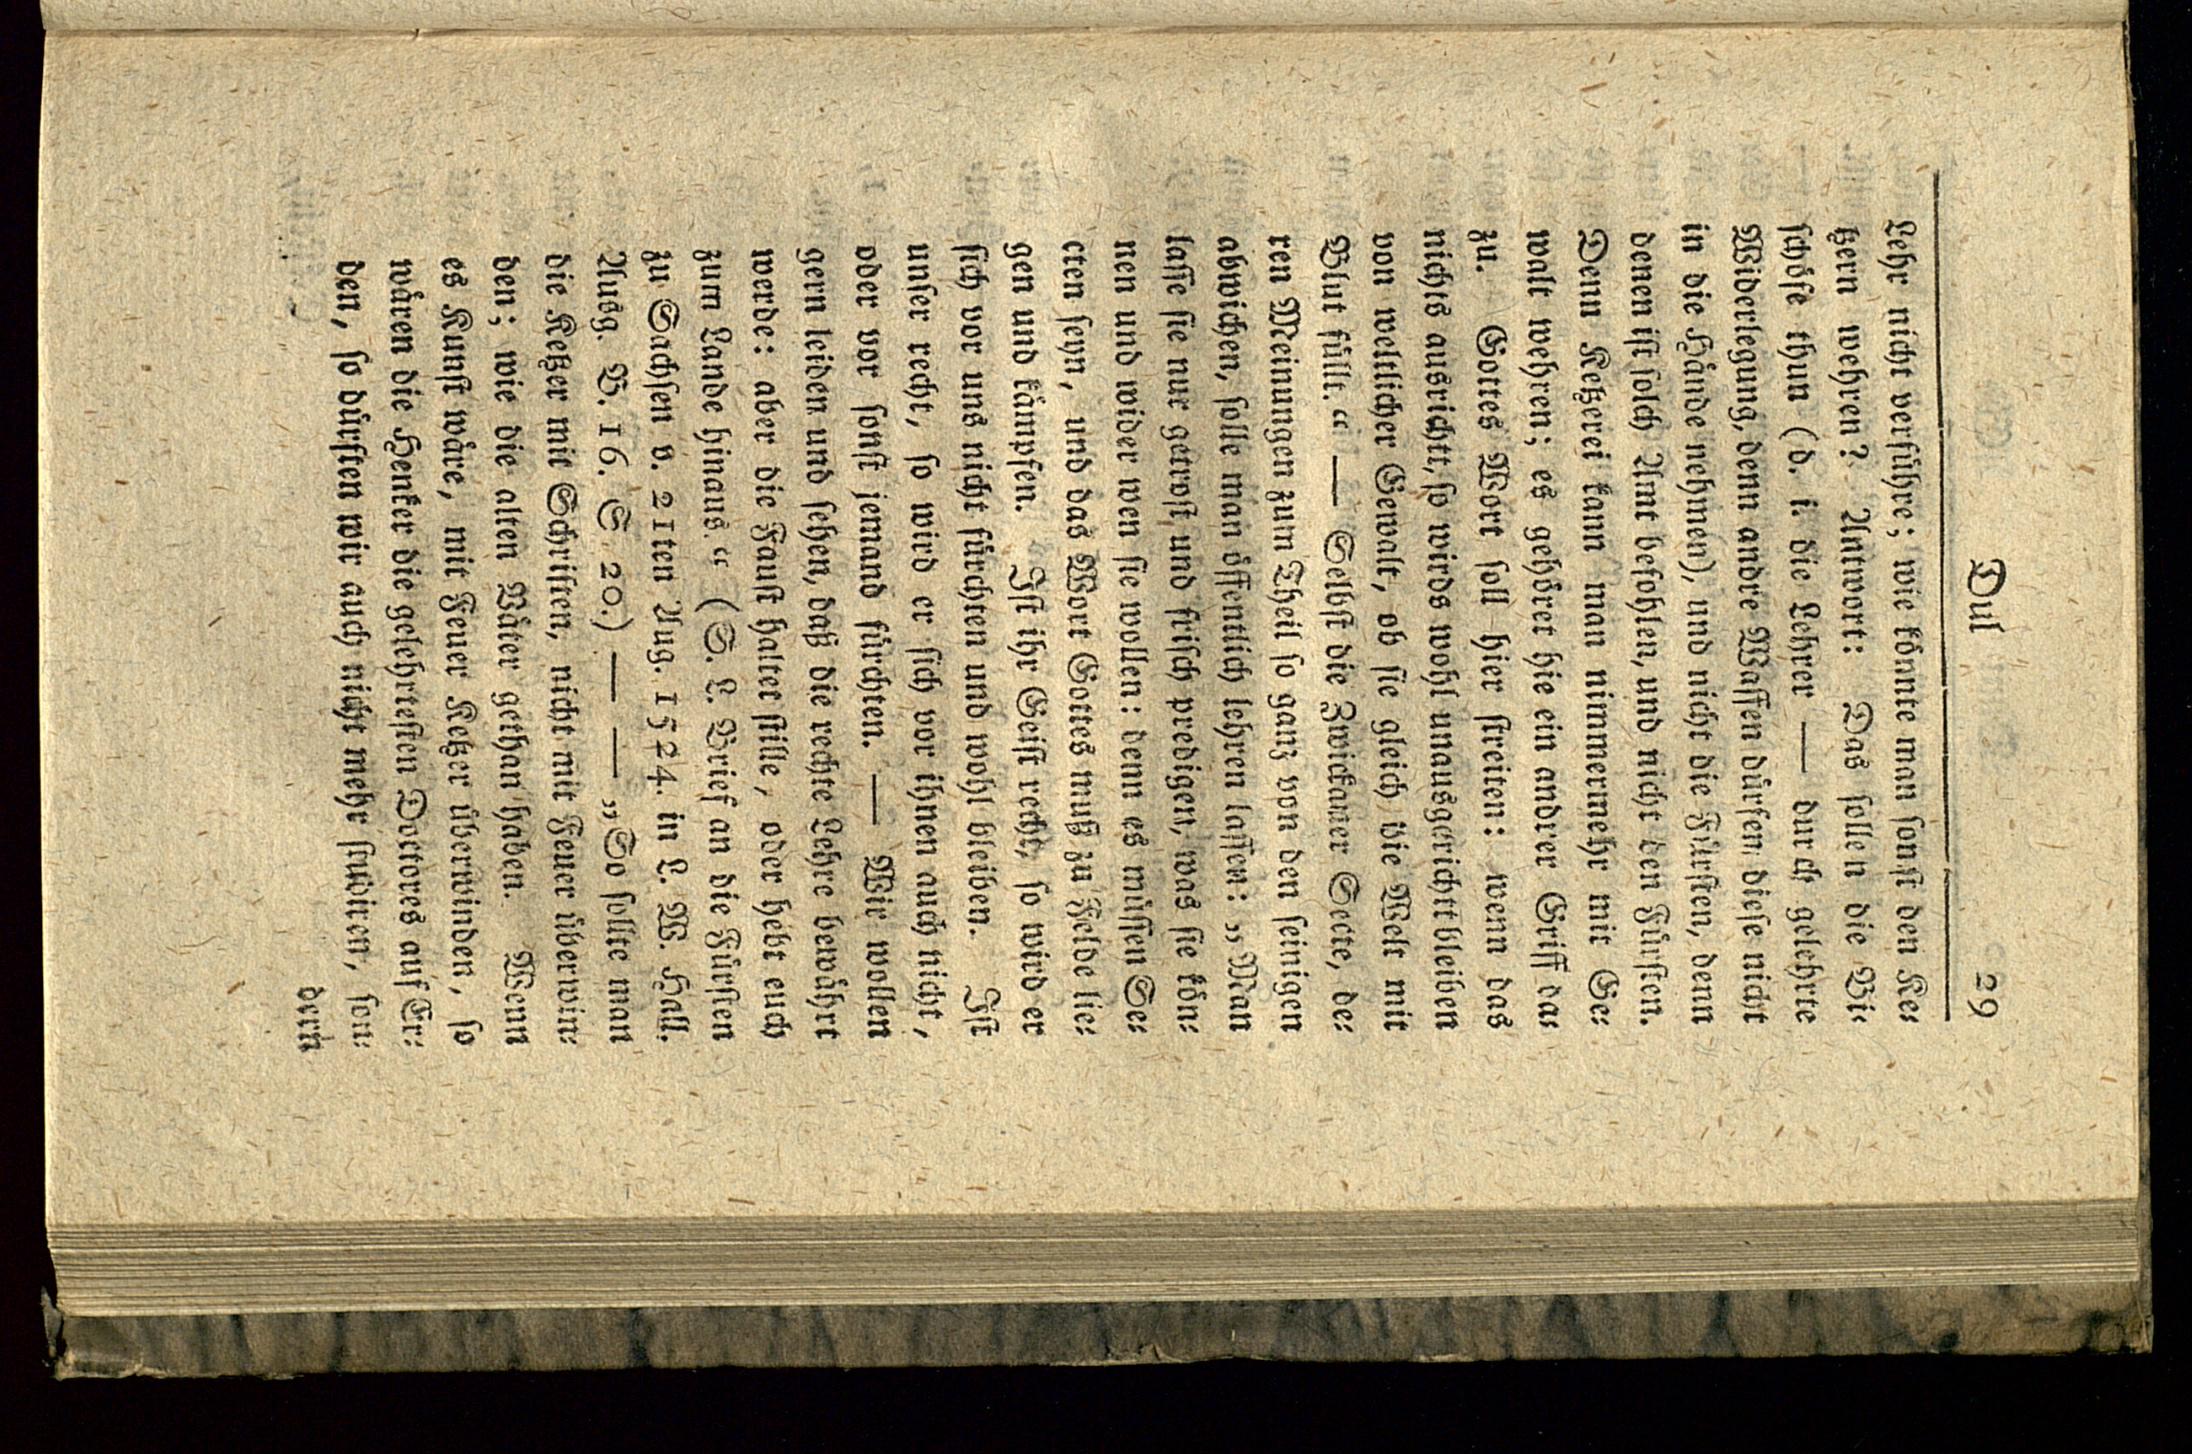 Dul 29
Lehr nicht verführe; wie könnte man sonst den Ke⸗
tzern wehren? Antwort: Das sollen die Bi⸗
schöfe thun (d. i. die Lehrer — durch gelehrte
Widerlegung, denn andre Waffen dürfen diese nicht
in die Hände nehmen), und nicht die Fürsten, denn
denen ist solch Amt befohlen, und nicht den Fürsten.
Denn Ketzerei kann man nimmermehr mit Ge⸗
walt wehren; es gehöret hie ein andrer Griff da⸗
zu. Gottes Wort soll hier streiten: wenn das
nichts ausricht, so wirds wohl unausgericht bleiben
von weltlicher Gewalt, ob sie gleich die Welt mit
Blut füllt.“ — Selbst die Zwickauer Secte, de⸗
ren Meinungen zum Theil so ganz von den seinigen
abwichen, solle man öffentlich lehren lassen: „Man
lasse sie nur getrost und frisch predigen, was sie kön⸗
nen und wider wen sie wollen: denn es müssen Se⸗
cten seyn, und das Wort Gottes muß zu Felde lie⸗
gen und kämpfen. Ist ihr Geist recht, so wird er
sich vor uns nicht fürchten und wohl bleiben. Ist
unser recht, so wird er sich vor ihnen auch nicht,
oder vor sonst jemand fürchten. — Wir wollen
gern leiden und sehen, daß die rechte Lehre bewährt
werde: aber die Faust haltet stille, oder hebt euch
zum Lande hinaus.“ (S. L. Brief an die Fürsten
zu Sachsen v. 21ten Aug. 1524. in L. W. Hall.
Ausg. B. 16. S. 20.) — — „So sollte man
die Ketzer mit Schriften, nicht mit Feuer überwin⸗
den; wie die alten Väter gethan haben. Wenn
es Kunst wäre, mit Feuer Ketzer überwinden, so
wären die Henker die gelehrtesten Doctores auf Er⸗
den, so dürften wir auch nicht mehr studiren, son⸗
dern